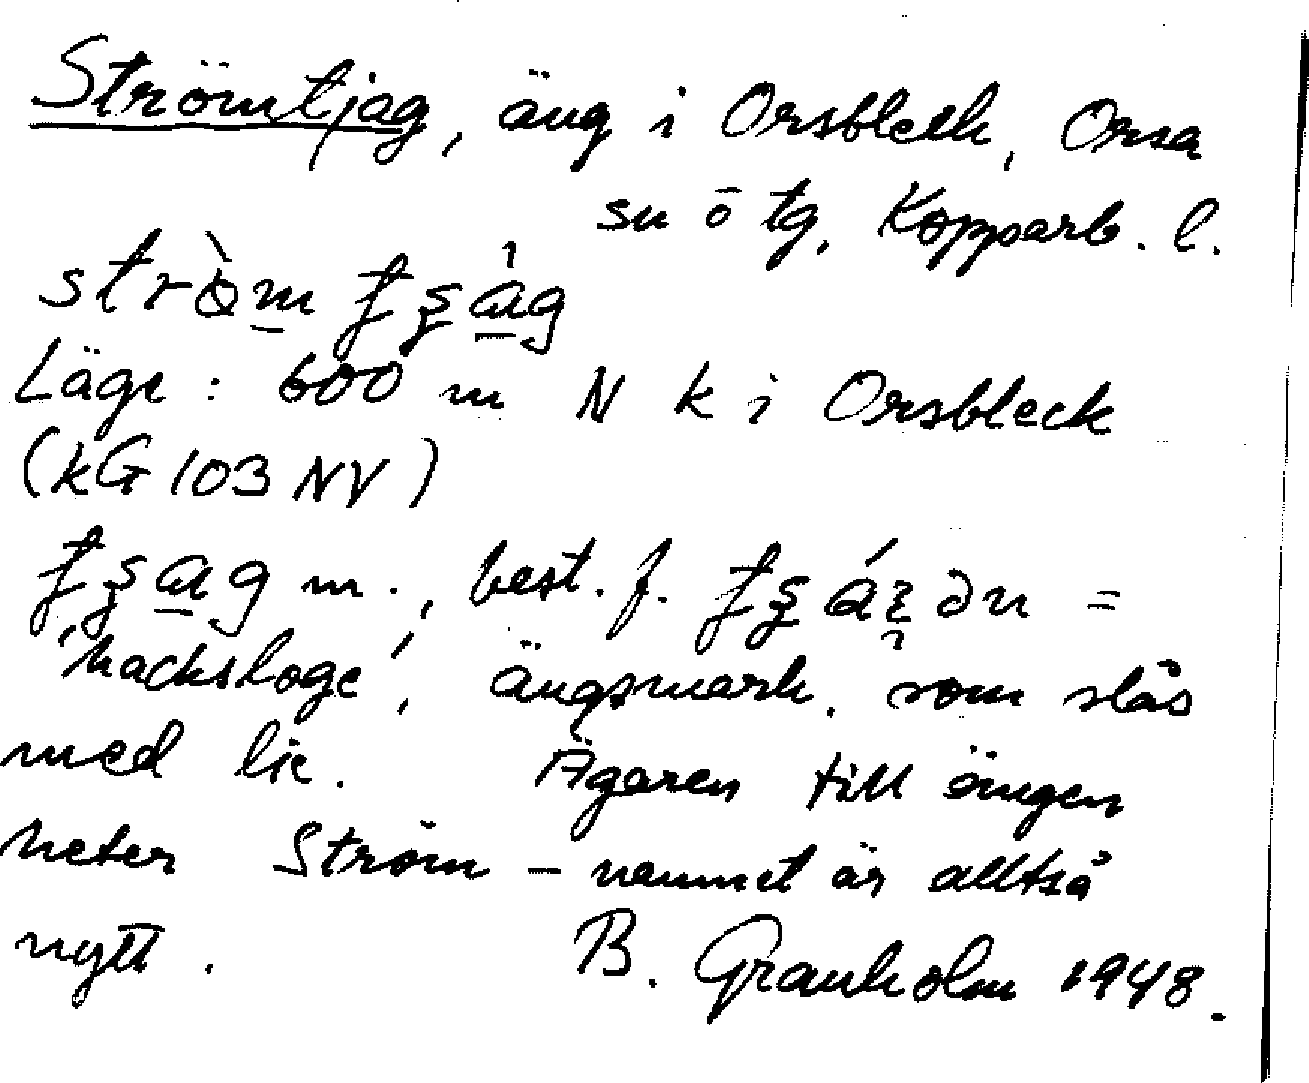 Strömtjag, äng i Orsbleck, Orsa
sn ö tg, Kopparb. l.
Läge: 600 m N k i Orsbleck
(kG 103 NV)
m., best. f. =
'hacksloge', ängsmark, som slås
med lie. Ägaren till ängen
heter Ström – namnet är alltså
nytt. B. Granholm 1948.